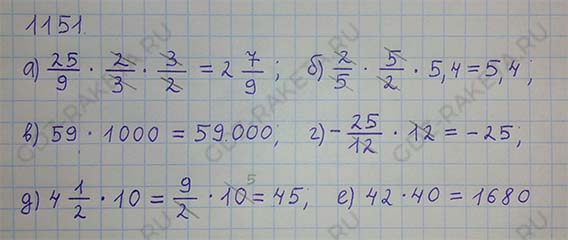 1151.
а) 25/9 · 2/3 · 3/2 = 2 7/9; б) 2/5 · 5/2 · 5,4 = 5,4;
в) 59 · 1000 = 59.000; г) - 25/12 · 12 = -25;
д) 4 1/2 · 10 = 9/2 · 10 5 = 45, е) 42 · 40 = 1680
GDZ-RAKETA.RU